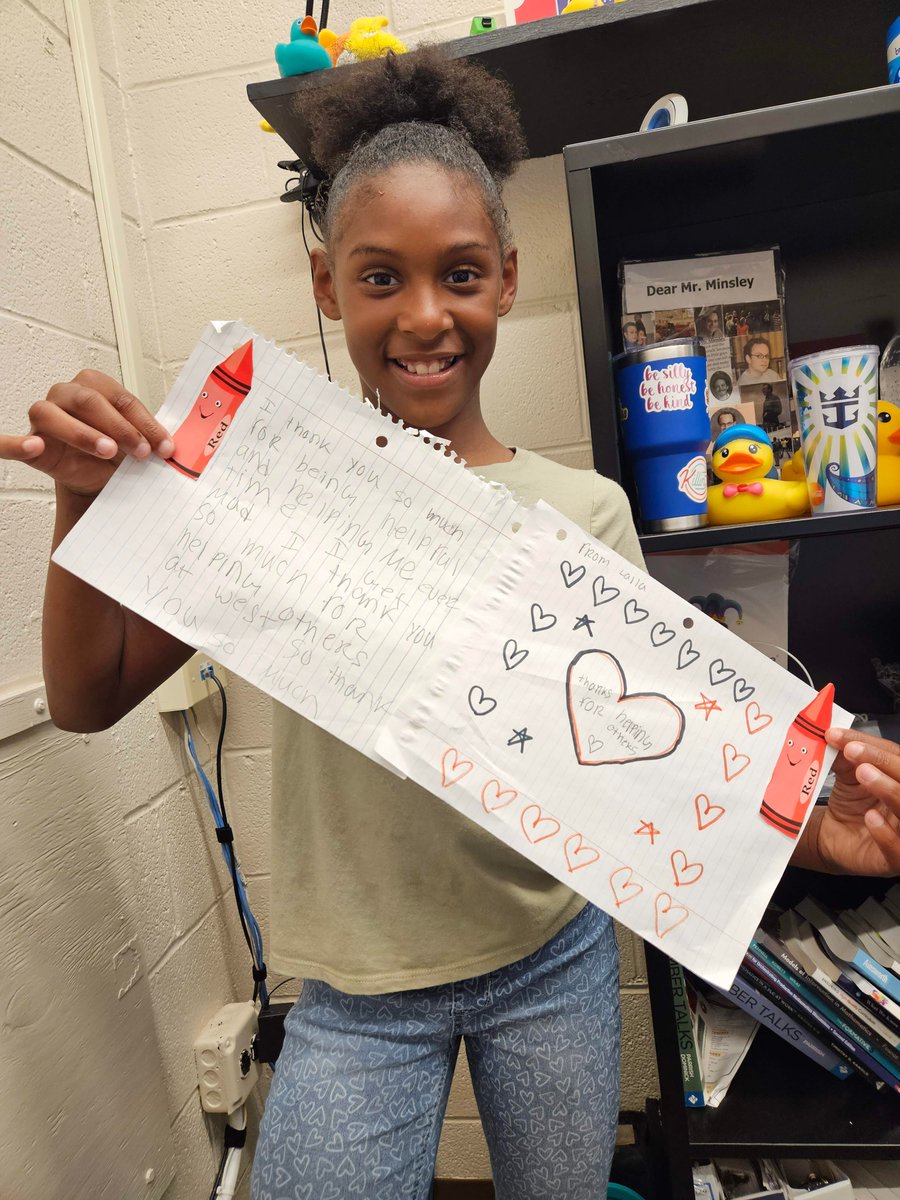 Dear Mr. Minsley
be silly
be honest
be kind
Red
I thank you so much
FOR being helpful
and helping me ever
time I get
Mad I thank you
so much for
helping others
at west so thank
you so much
From Laila
thanks
FOR helping
others
Red
BER TALKS
PARRISH
DOMINICK
BER TALKS
Ainsworth
FORMATIVE